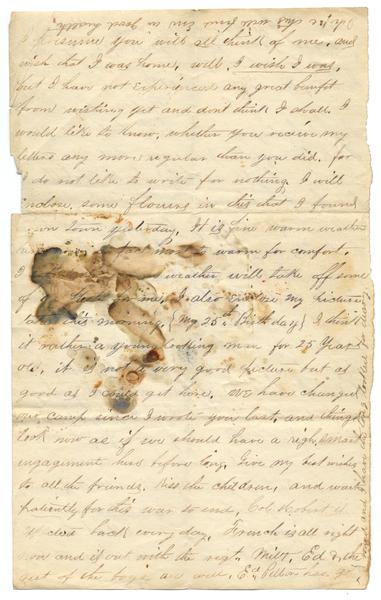 this will find you in good health.
I presume you will all think of me, and
wish that I was home, well, I wish I was,
but I have not experienced any great benefit
from wishing yet and dont think I shall. I
would like to know, whether you receive my
letters any more regular than you did. for
I do not like to write for nothing. I will
inclose some flowers in this that I found
down town yesterday. It is fine warm weather
to warm for comfort
I weather will take off some
of for me, I also enclose my picture
this morning (My 25th Birthday) I think
it rather a young looking man for 25 Years
old, it is not a very good picture but as
good as I could get here. We have changed
our camp since I wrote you last, and things
look now as if we should have a right smart
engagement here before long. Give my best wishes
to all the friends. Kiss the children, and wait
patiently for this war to end, Col Robert is
expected back every day. French is all right
now and is out with the regt. Milt, Ed & the
rest of the boys are well, Ed has